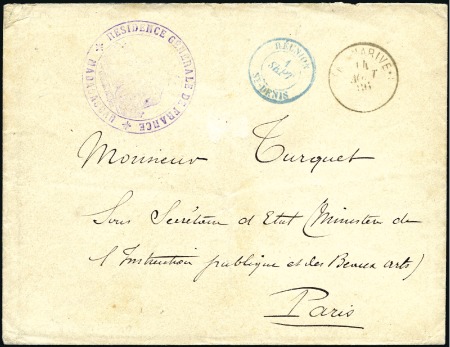 RESIDENCE GENERALE DE FRANCE
MADAGASCAR
RÉUNION
1
SEPT
ST-DENIS
14
AOUT
86
Monsieur Turquet
Sous Secrétaire d'Etat (Ministère de
l'Instruction publique et des Beaux arts)
Paris